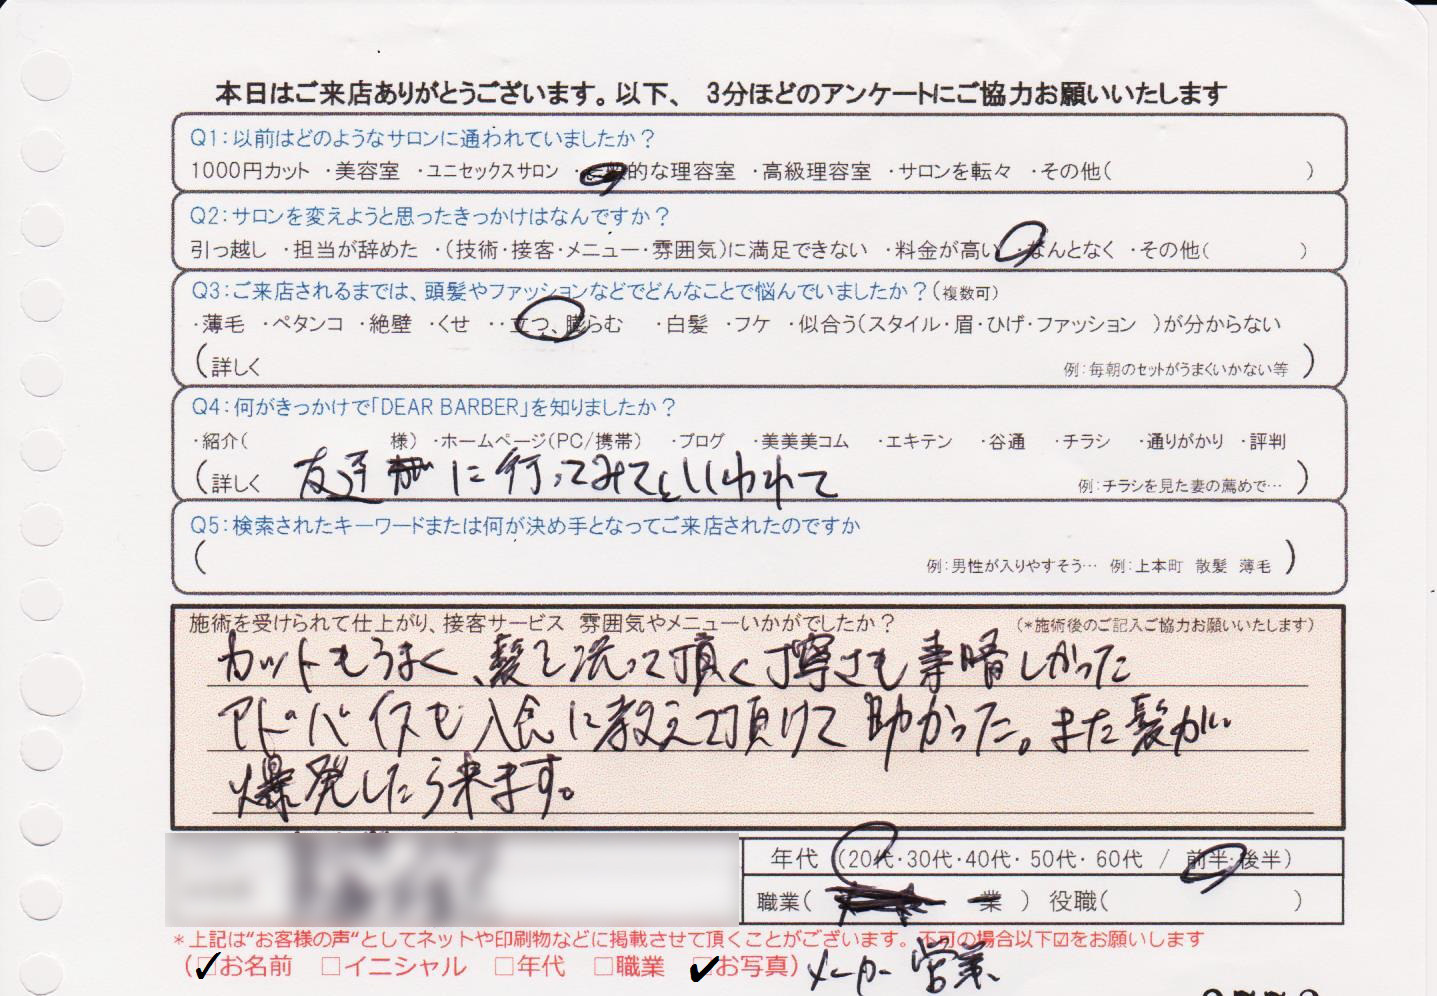 本日はご来店ありがとうございます。以下、 3分ほどのアンケートにご協力お願いいたします
Q1:以前はどのようなサロンに通われていましたか?
1000円カット ・美容室 ・ユニセックスサロン ・一般的な理容室 ・高級理容室 ・サロンを転々 ・その他( )
Q2:サロンを変えようと思ったきっかけはなんですか?
引っ越し ・担当が辞めた ・(技術・接客・メニュー・雰囲気)に満足できない ・料金が高い ・なんとなく ・その他( )
Q3:ご来店されるまでは、頭髪やファッションなどでどんなことで悩んでいましたか?(複数可)
・薄毛 ・ペタンコ ・絶壁 ・くせ ・・立つ、膨らむ ・白髪 ・フケ ・似合う(スタイル・眉・ひげ・ファッション )が分からない
(詳しく 例:毎朝のセットがうまくいかない等 )
Q4:何がきっかけで「DEAR BARBER」を知りましたか?
・紹介( 様) ・ホームページ(PC/携帯) ・ブログ ・美美美コム ・エキテン ・谷通 ・チラシ ・通りがかり ・評判
(詳しく 友達に行ってみてといわれて 例:チラシを見た妻の薦めで… )
Q5:検索されたキーワードまたは何が決め手となってご来店されたのですか
( 例:男性が入りやすそう… 例:上本町 散髪 薄毛 )
施術を受けられて仕上がり、接客サービス 雰囲気やメニューいかがでしたか? (*施術後のご記入ご協力お願いいたします)
カットもうまく、髪を洗って頂く丁寧さも素晴しかった
アドバイスも入念に教えて頂けて助かった。また髪が
爆発したら来ます。
年代 (20代・30代・40代・50代・60代 / 前半・後半)
職業( 業 ) 役職( )
*上記は"お客様の声"としてネットや印刷物などに掲載させて頂くことがございます。不可の場合以下☑をお願いします
(☑お名前 □イニシャル □年代 □職業 ☑お写真) メーカー営業